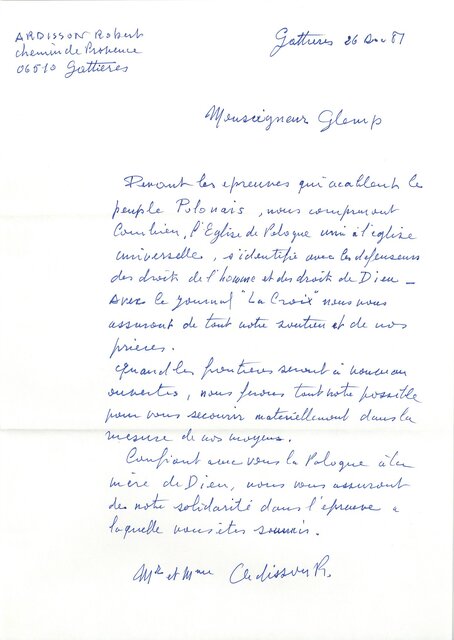 ARDISSON Robert
chemin de Provence
06510 Gattières
Gattières 26 Dec 81
Monseigneur Glemp
Devant les epreuves qui acablent le
peuple Polonais, nous comprenont
Combien, l'Eglise de Pologne uni à l'église
universelle, s'identifie avec les defenseurs
des droits de l'homme et des droits de Dieu –
Avec le journal "La Croix" nous vous
assuront de tout notre soutien et de nos
prieres.
Quand les frontieres seront à nouveau
ouvertes, nous ferons tout notre possible
pour vous secourir materiellement dans la
mesure de nos moyens.
Confiant avec vous la Pologne à la
mère de Dieu, nous vous assuront
de notre solidarité dans l'épreuve a
laquelle vous êtes soumis.
Mr et Mme Ardisson R.